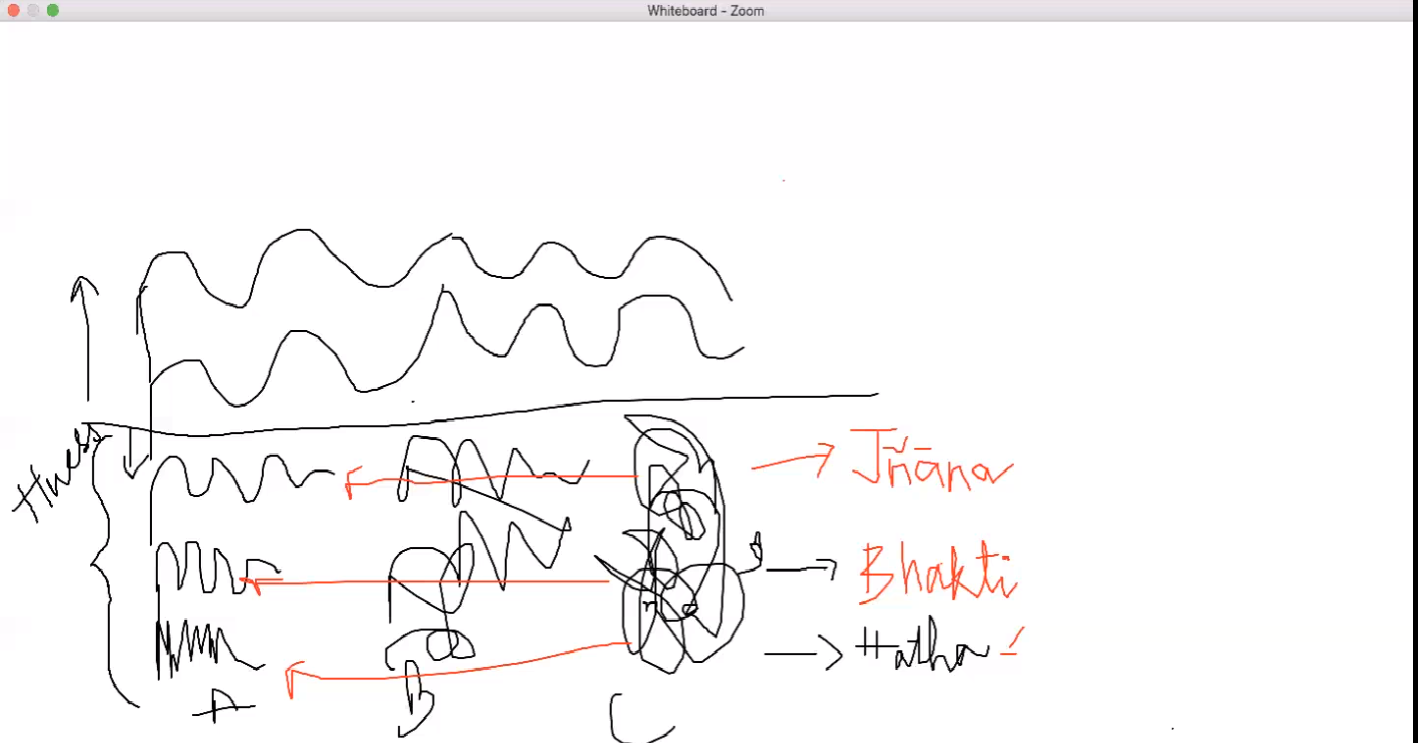 Whiteboard - Zoom
Hness
Jñāna
Bhakti
Hatha
A
B
C